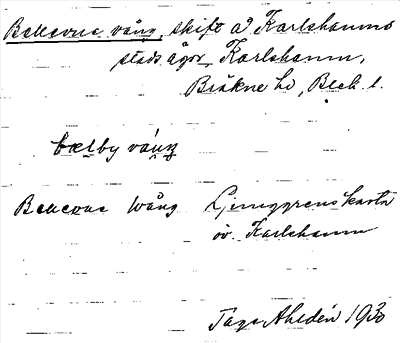 Bellevue vång, skift å Karlshamns
stads ägor, Karlshamn,
Bräkne hd, Blek. l.
bælby váŋ
Bellevue Wång Ljunggrens karta
öv. Karlshamn
Tage Ahldén 1930